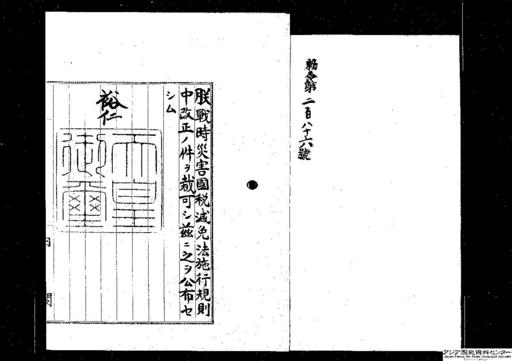 勅令第二百八十六號
朕戰時災害國税減免法施行規則
中改正ノ件ヲ裁可シ茲ニ之ヲ公布セ
シム
裕仁
天皇
御璽
内閣
アジア歴史資料センター